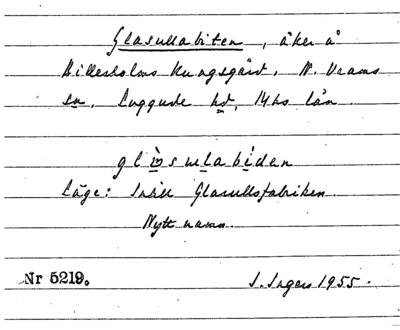 Glasullabiten, åker å
Billesholms Kungsgård, N. Vrams
sn, Luggude hd, Mhs län.
glɑ̀sulabídən
Läge: Intill Glasullsfabriken.
Nytt namn.
Nr 5219.
I. Ingers 1955.